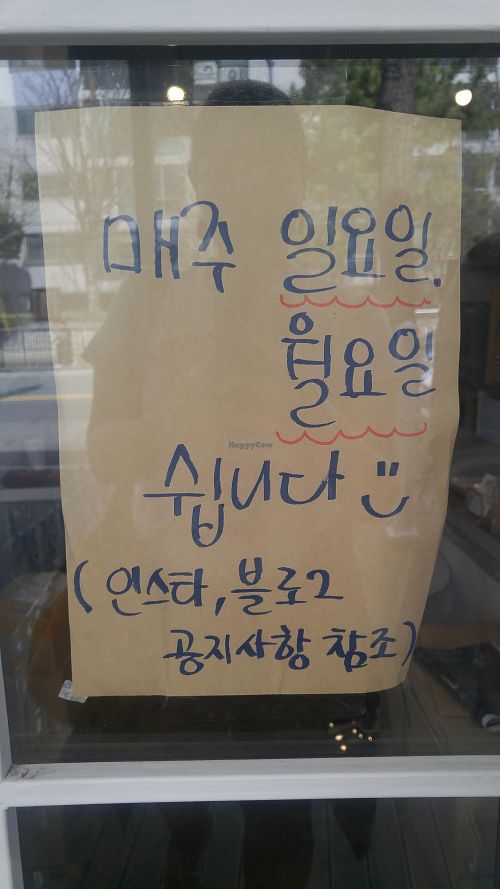 매주 일요일,
월요일
HappyCow
쉽니다 :)
(인스타, 블로그
공지사항 참조)